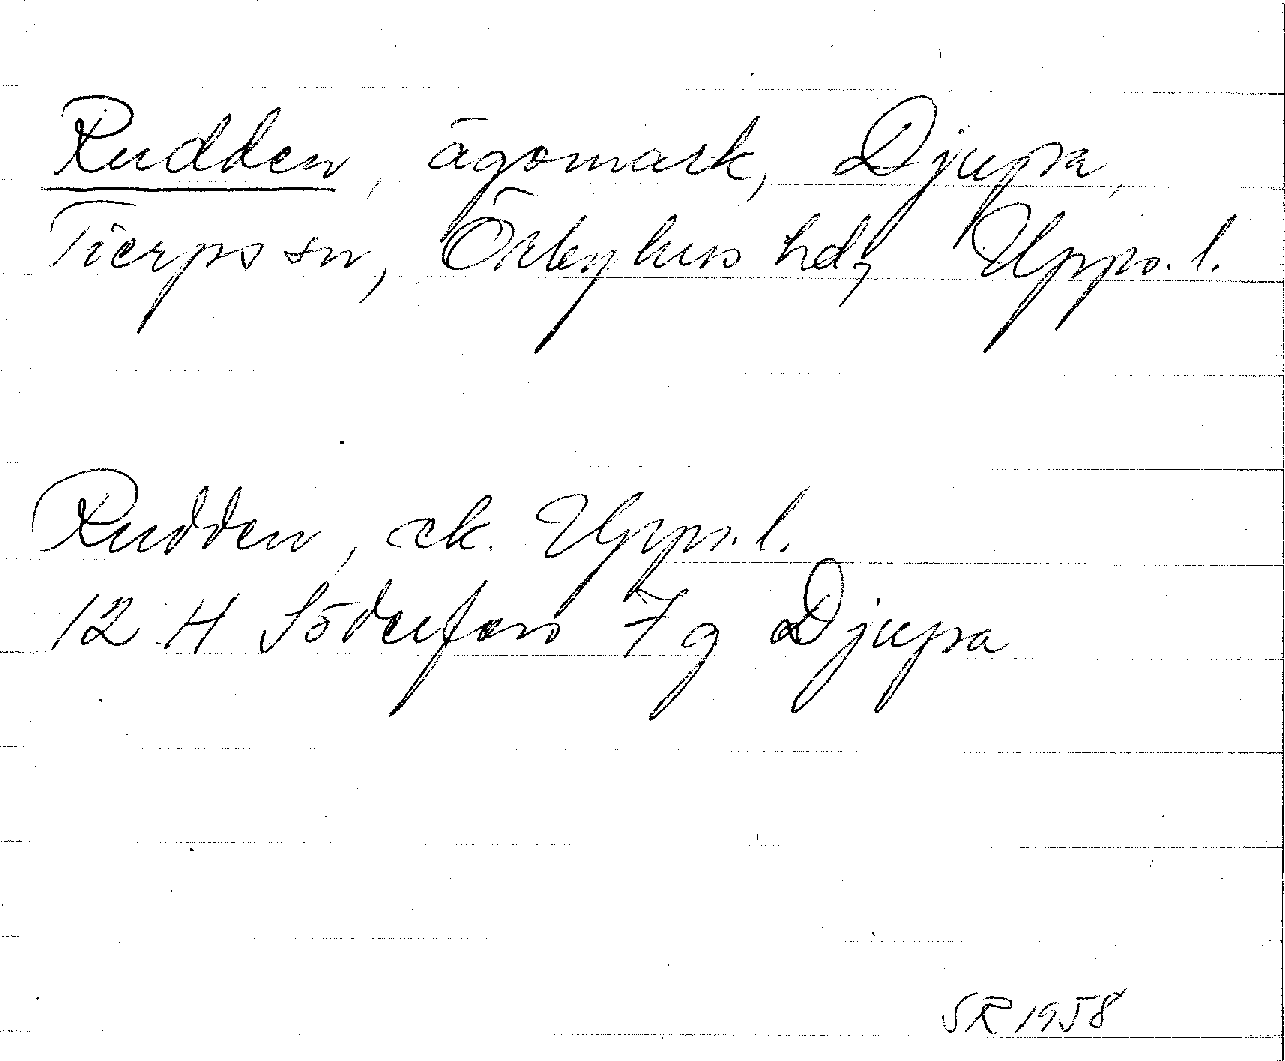 Rudden, ägomark, Djupa,
Tierps sn, Örbyhus hd, Upps. l.
Rudden, ek. Upps. l.
12 H Söderfors 7 g Djupa
SR 1958